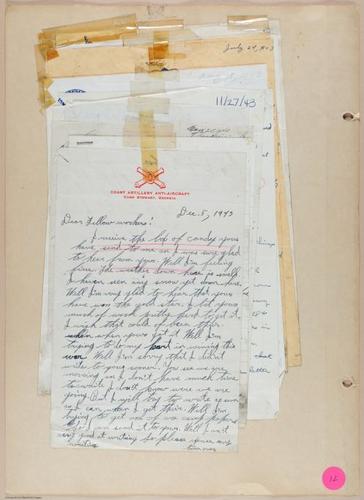 July 29, 1943
11/27/43
COAST ARTILLERY ANTI-AIRCRAFT
CAMP STEWART, GEORGIA
Dec. 5, 1943
Dear Fellow workers:
I receive the box of candy you
have send to me an I was very glad
to hear from you. Well I'm feeling
fine. The weather down here is swell
I haven seen any snow yet down here.
Well I'm very glad to hear that you
have won the gold star. I bet you
much of work putty hard to get it.
I wish that could of been there
when when you got it. Well I'm
trying to do my part in winning this
war. Well I'm sorry that I didn't
write to you sooner. You see we are
moving an I don't have much time
to write. I don't know were we are
going. But I will try to write to you
as I can when I get there. Well I'm
trying to get one of our camp papers
so I can send it to you. Well I ain't
very good at writing so please excuse my
writing
12